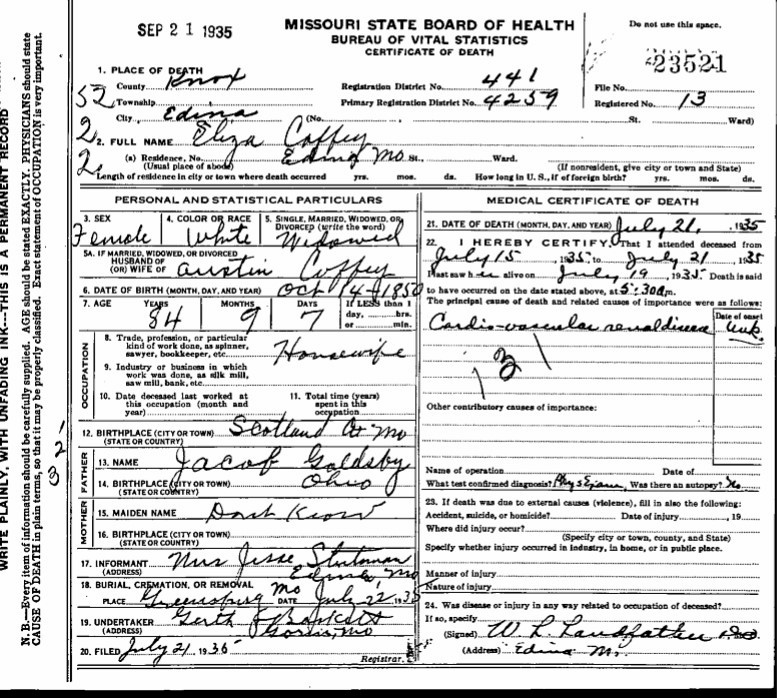 SEP 21 1935
MISSOURI STATE BOARD OF HEALTH
BUREAU OF VITAL STATISTICS
CERTIFICATE OF DEATH
Do not use this space.
23521
1. PLACE OF DEATH
County Knox
Registration District No. 441
File No.
Township
Primary Registration District No. 4259
Registered No. 13
City Edina (No. St. Ward)
52
2
2
2. FULL NAME Eliza Coffey
(a) Residence, No. Edina Mo St., Ward.
(Usual place of abode) (If nonresident, give city or town and State)
Length of residence in city or town where death occurred yrs. mos. ds. How long in U. S., if of foreign birth? yrs. mos. ds.
PERSONAL AND STATISTICAL PARTICULARS
3. SEX 4. COLOR OR RACE 5. SINGLE, MARRIED, WIDOWED, OR DIVORCED (write the word)
Female White Widowed
5A. IF MARRIED, WIDOWED, OR DIVORCED
HUSBAND OF
(OR) WIFE OF Austin Coffey
6. DATE OF BIRTH (MONTH, DAY, AND YEAR) Oct 14 1850
7. AGE YEARS MONTHS DAYS If LESS than 1
day, hrs.
or min.
84 9 7
OCCUPATION
8. Trade, profession, or particular
kind of work done, as spinner,
sawyer, bookkeeper, etc. Housewife
9. Industry or business in which
work was done, as silk mill,
saw mill, bank, etc.
10. Date deceased last worked at
this occupation (month and
year)
11. Total time (years)
spent in this
occupation
12. BIRTHPLACE (CITY OR TOWN) Scotland Co Mo
(STATE OR COUNTRY)
FATHER
13. NAME Jacob Goldsby
14. BIRTHPLACE (CITY OR TOWN) Ohio
(STATE OR COUNTRY)
MOTHER
15. MAIDEN NAME Dont Know
16. BIRTHPLACE (CITY OR TOWN)
(STATE OR COUNTRY)
17. INFORMANT Mrs Jesse
(ADDRESS) Edina, Mo
18. BURIAL, CREMATION, OR REMOVAL
PLACE Greensburg Mo DATE July 22 1935
19. UNDERTAKER Gerth & Baskett
(ADDRESS) Gorin, Mo
20. FILED July 21 1935
Registrar.
MEDICAL CERTIFICATE OF DEATH
21. DATE OF DEATH (MONTH, DAY, AND YEAR) July 21, 1935
22. I HEREBY CERTIFY, That I attended deceased from
July 15, 1935, to July 21, 1935
I last saw h er alive on July 19, 1935. Death is said
to have occurred on the date stated above, at 5:30 a.m.
The principal cause of death and related causes of importance were as follows:
Date of onset
Cardio-vascular renal disease Unk.
131
Other contributory causes of importance:
Name of operation Date of
What test confirmed diagnosis? Phys Exam. Was there an autopsy? No
23. If death was due to external causes (violence), fill in also the following:
Accident, suicide, or homicide? Date of injury , 19
Where did injury occur?
(Specify city or town, county, and State)
Specify whether injury occurred in industry, in home, or in public place.
Manner of injury
Nature of injury
24. Was disease or injury in any way related to occupation of deceased?
If so, specify
(Signed) W. L. Landfather
(Address) Edina Mo.
1
2
3
WRITE PLAINLY, WITH UNFADING INK—THIS IS A PERMANENT RECORD
N. B.—Every item of information should be carefully supplied. AGE should be stated EXACTLY. PHYSICIANS should state
CAUSE OF DEATH in plain terms, so that it may be properly classified. Exact statement of OCCUPATION is very important.